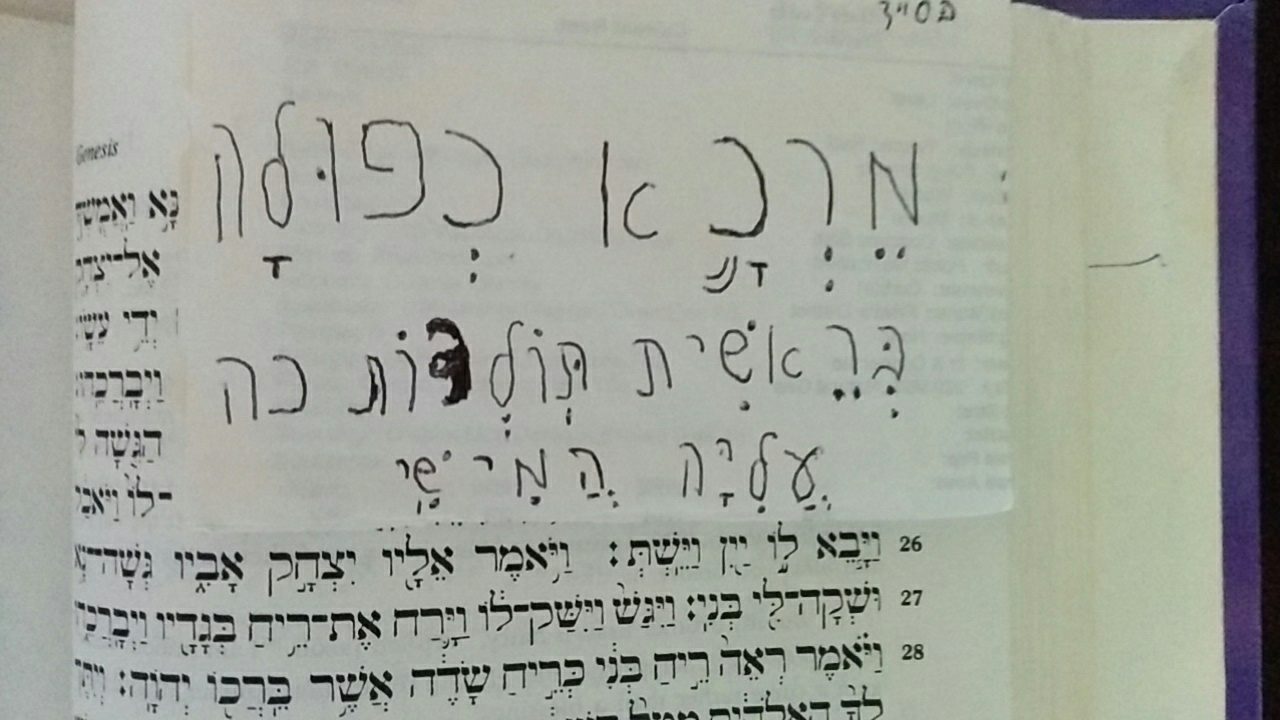 בס״ד
Genesis
מֵרְכָא כְּפוּלָה
בְּרֵאשִׁית תּוֹלְדוֹת כה
עֲלִיָּה חֲמִישִׁי
נָּא וַאֲמֻשְׁךָ
אֶל־יִצְחָק
יְדֵי עֵשָׂו
וַיְבָרְכֵהוּ׃
הַגִּשָׁה
־לוֹ
26 וַיָּבֵא לוֹ יַיִן וַיֵּשְׁתְּ׃ וַיֹּאמֶר אֵלָיו יִצְחָק אָבִיו גְּשָׁה־
27 וּשְׁקָה־לִּי בְּנִי׃ וַיִּגַּשׁ וַיִּשַּׁק־לוֹ וַיָּרַח אֶת־רֵיחַ בְּגָדָיו
28 וַיֹּאמֶר רְאֵה רֵיחַ בְּנִי כְּרֵיחַ שָׂדֶה אֲשֶׁר בֵּרְכוֹ יְהוָה׃
לְךָ הָאֱלֹהִים מִטַּל